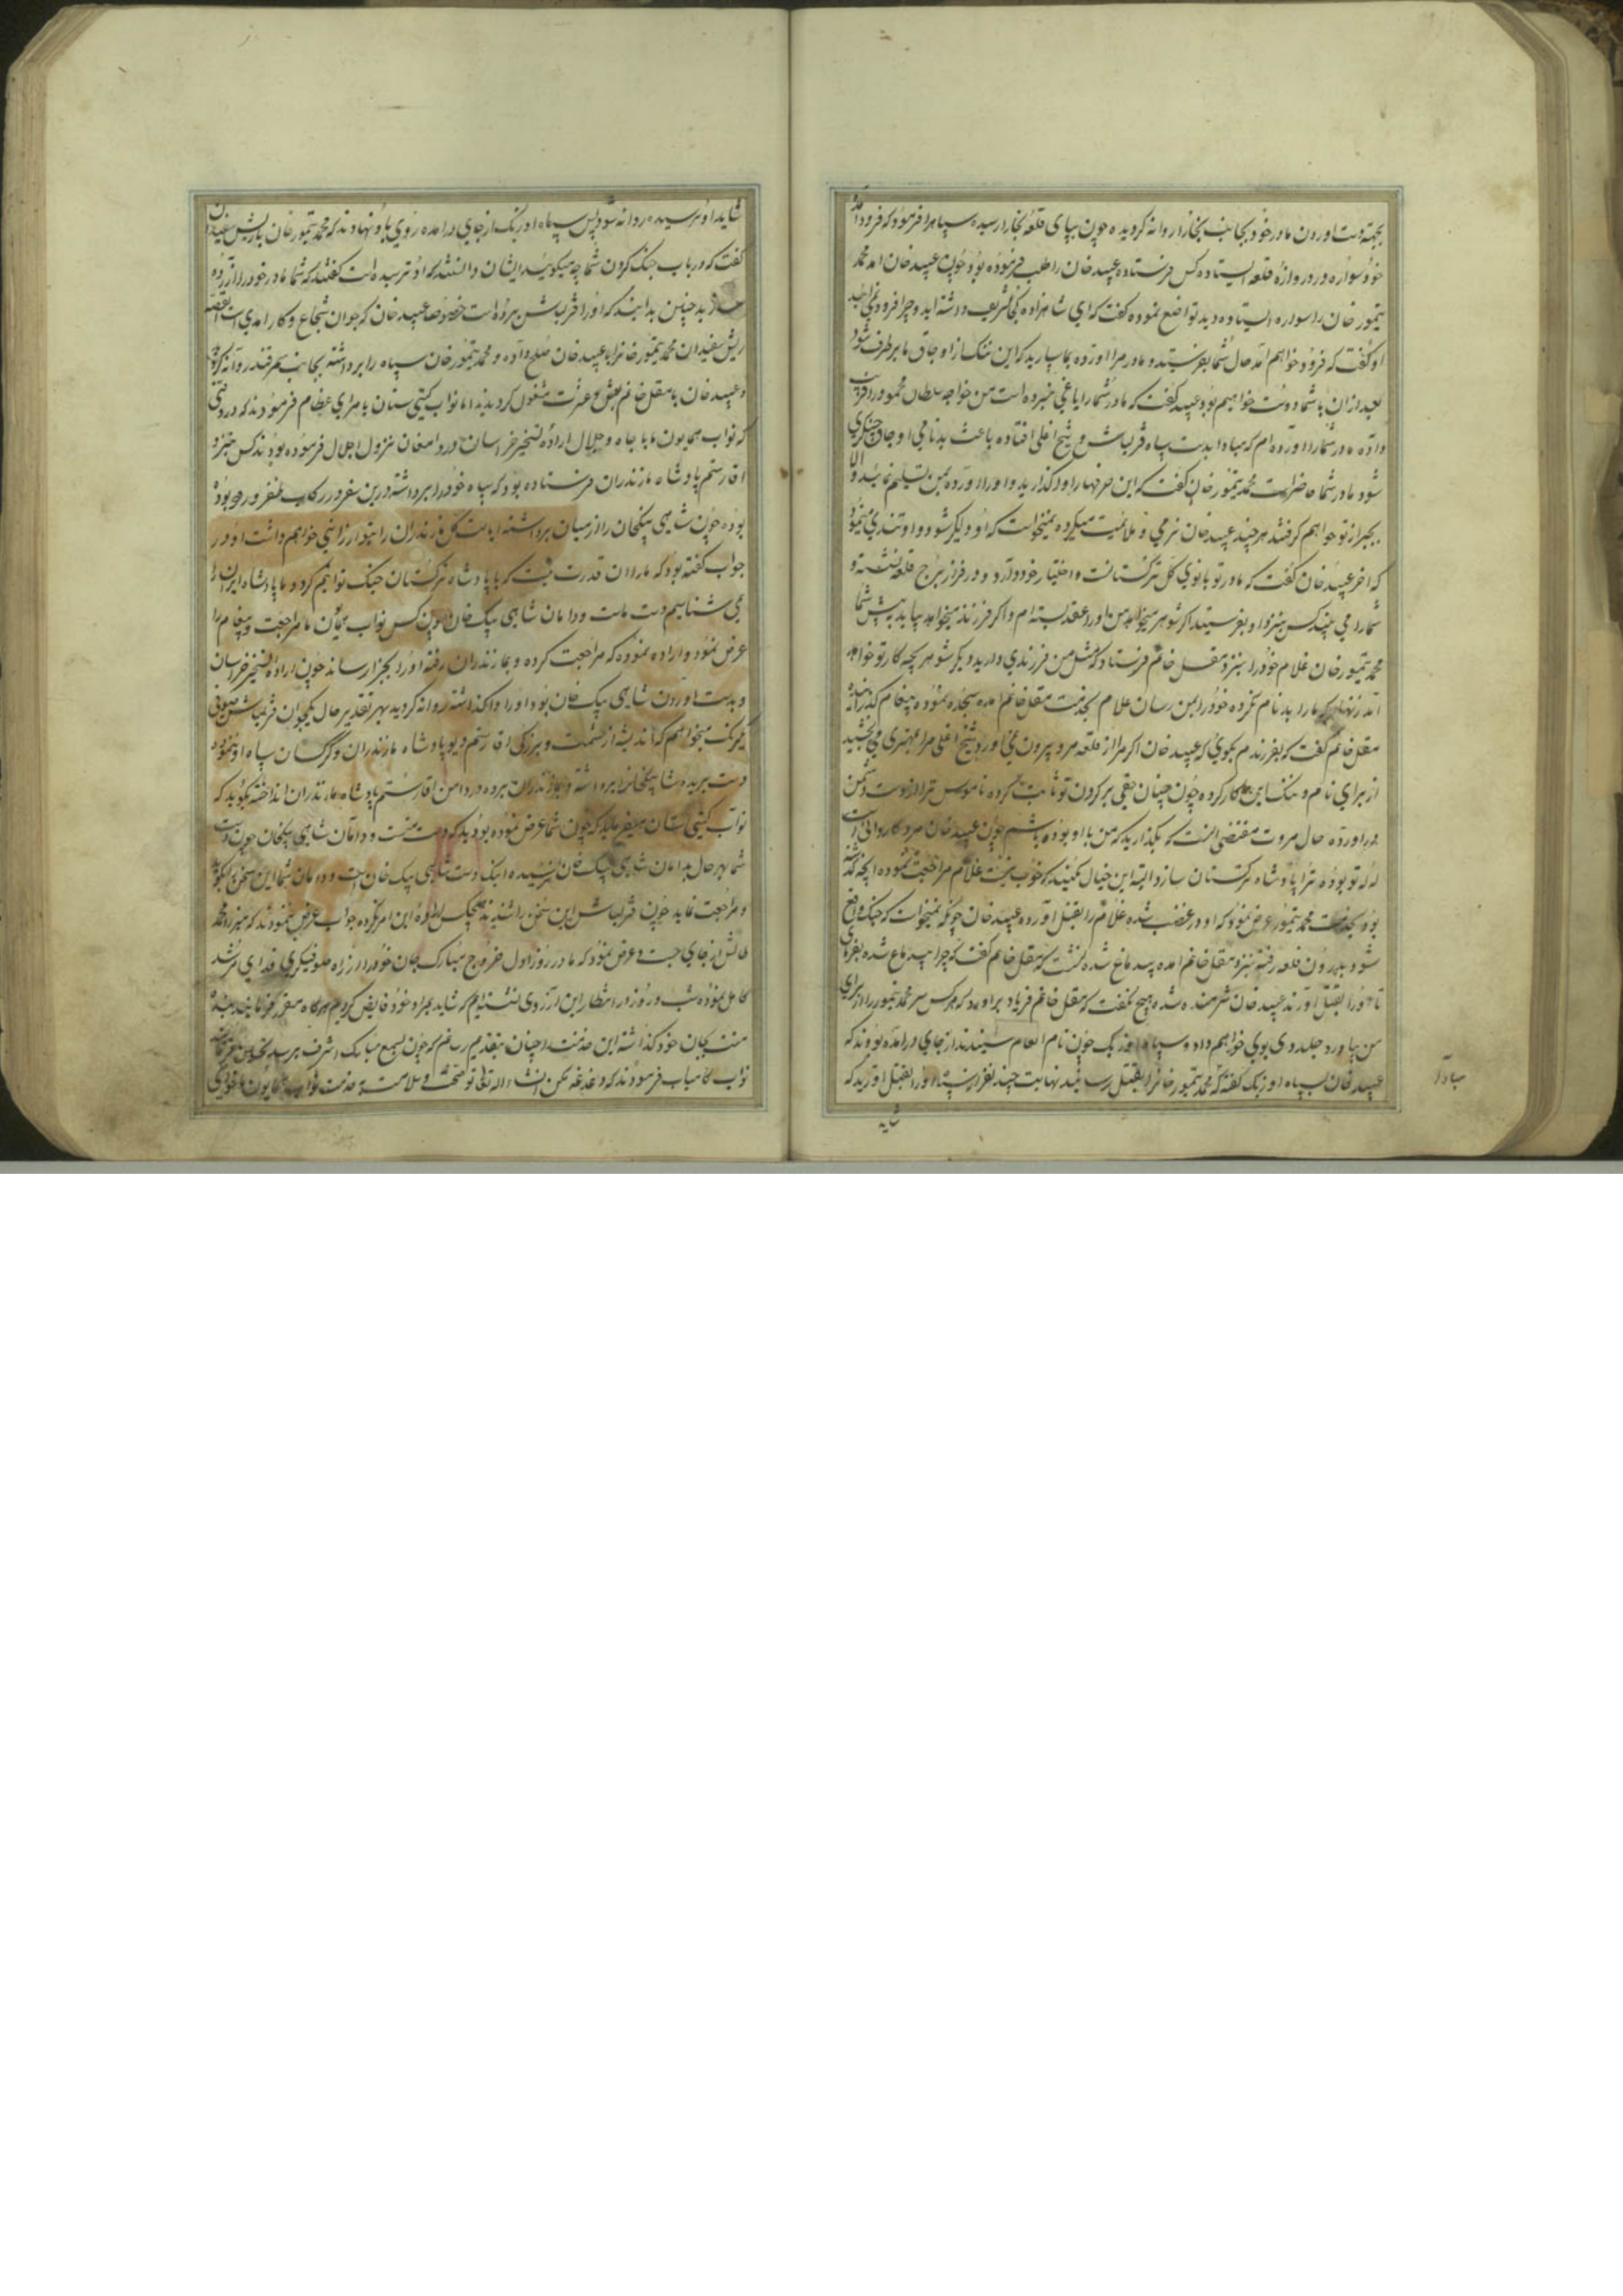 بجهت اورون مادر خود بجانب بخارا روانه کردیده چون بپای قلعه بخارا رسیده سپاه را فرمود که فرود آمد
خود سواره در دروازهٔ قلعه ایستاده کس فرستاده عبید خان را طلب فرموده بود چون عبید خان آمد محمد
تیمور خان را سواره ایستاده دید تواضع نموده گفت که ای شاهزاده تشریف داشته اید و چرا فرود نمی آیید
او گفت که فرود خواهم آمد حال شما بفرستید و مادر مرا آورده بما سپارید که این ننک از اوجاق ما برطرف شود
بعد از ان با شما دوست خواهیم بود عبید گفت که مادر شما را یاغی خبر ده است من خواجه سلطان محمود را فریب
داده مادر شما را آورده ام که مبادا بدست سپاه قزلباش و شیخ اغلی افتاده باعث بدنامی اوجاق چنکیزی
شود مادر شما حاضر است محمد تیمور خان گفت که این حرفها را وا گذارید و او را آورده بمن تسلیم نمائید والا
بجبر از تو خواهم گرفت هر چند عبید خان نرمی و ملائمت میکرده نمیخواست که او دلگیر شود و او تندی مینمود
که اخر عبید خان گفت که مادر تو بانوی کل ترکستانست و اختیار خود دارد و در فراز برج قلعه نشسته و
شما را می بیند کس بنزد او بفرستید اگر شوهر میخواهد من او را عقد بسته ام و اگر فرزند میخواهد بیاید پیش شما
محمد تیمور خان غلام خود را بنزد مقل خانم فرستاد که مثل من فرزندی دارید دیگر شوهر بچه کار تو خواهد
آمد زنهار که ما را بدنام نکرده خود را بمن رسان غلام بخدمت مقل خانم آمده سجده نموده پیغام گذرانیده
مقل خانم گفت که بفرزندم بکوی که عبید خان اگر مرا از قلعه مرو بیرون نمی آورد شیخ اغلی مرا بمهتری می بخشید
از برای نام و ننک این کار کرده چون چنان حقی بر گردن تو ثابت کرده ناموس ترا از دست دشمن
در آورده حال مروت مقتضی آنست که بگذارید که من با او بوده باشم چون عبید خان مرد کاروانی است
له له تو بوده ترا پادشاه ترکستان سازد البته این خیال نکنید که خوب نیست غلام مراجعت نموده انچه گذشته
بود بخدمت محمد تیمور عرض نمود که او در غضب شده غلام را بقتل آورده عبید خان چونکه نمیخواست که جنک واقع
شود بدرون قلعه رفته بنزد مقل خانم آمده بیدماغ شده نشست که مقل خانم گفت که چرا بیدماغ شده بفرمای
تا او را بقتل آورند عبید خان شرمنده شده هیچ نکفت که مقل خانم فریاد بر آورد که هر کس سر محمد تیمور را از برای
من بیاورد جلدوی بوی خواهم داد و سپاه اوزبک چون نام انعام شنیدند از جای درآمده بودند که
عبید خان بسپاه اوزبک گفته که محمد تیمور خان را بقتل رسانید نهایت چند نفر او را بقتل آورید که
شاید
شاید او ترسیده روانه شود پس سپاه اوزبک از جای درآمده روی باو نهادند که محمد تیمور خان با ریش سفیدان
گفت که در باب جنک کردن شما چه میکوئید ایشان دانستند که او ترسیده است گفتند که شما مادر خود را آزرده
بد چنین بدانید که او را قزلباش برده است خصوصا عبید خان که جوان شجاع و کارامدی است القصه
ریش سفیدان محمد تیمور خان را با عبید خان صلح داده و محمد تیمور خان سپاه را برداشته بجانب سمرقند روانه کردید
و عبید خان با مقل خانم بعیش و عشرت مشغول کردیدند اما نواب کیتی ستان بامرای عظام فرمودند که در وقتی
که نواب همایون ما با جاه و جلال اراده تسخیر خراسان در دامغان نزول اجلال فرموده بودند کس بنزد
اقا رستم پادشاه مازندران فرستاده بود که سپاه خود را برداشته درین سفر در رکاب ظفر ورود بوده
بوده چون شاهی بیکخان را از میان برداشته ایالت کل مازندران را بتو ارزانی خواهم داشت او در
جواب گفته بود که ما را ان قدرت نیست که با پادشاه ترکستان جنک توانیم کرد و ما پادشاه ایران را
نمی شناسیم دست ماست و دامان شاهی بیک خان چون کس نواب همایون ما مراجعت و پیغام را
عرض نمود و اراده نموده که مراجعت کرده و بمازندران رفته او را بجزا رساند چون اراده تسخیر خراسان
و بدست آوردن شاهی بیک خان بود او را واگذاشته روانه کردید بهر تقدیر حال یکجوان قزلباش صوفی
یکرنک میخواهم که اندیشه از حشمت و بزرگی اقا رستم دیو پادشاه مازندران و گرگسان سپاه او ننموده
دست بریده شاهی بیکخان را برداشته و بمازندران برده در دامن اقا رستم پادشاه مازندران انداخته بکوید که
نواب کیتی ستان میفرماید که چون شما عرض نموده بودید که دست منست و دامان شاهی بیکخان چون دست
شما بهر حال بدامان شاهی بیک خان نرسیده اینک دست شاهی بیک خان است و دامان شما این سخن بکوید
و مراجعت نماید چون قزلباش این سخن را شنیدند هیچک اراده این امر نکرده جواب عرض ننمودند که میرزا محمد
طالش از جای جست و عرض نمود که ما در روز اول خروج مبارک جان خود را در راه صوفیگری فدای مرشد
کامل نموده شب و روز در انتظار این آرزوی نشسته ایم که شاید بمراد خود فایض گردیم هر گاه مقرر فرمایند بنده
منت بجان خود گذاشته این خدمت را چنان بتقدیم رسانم که چون بسمع مبارک اشرف برسد تحسین فرمایند
نواب کامیاب فرمودند که دغدغه مکن انشاء الله تعالی تو صحت و سلامت بخدمت نواب همایون ما خواهی